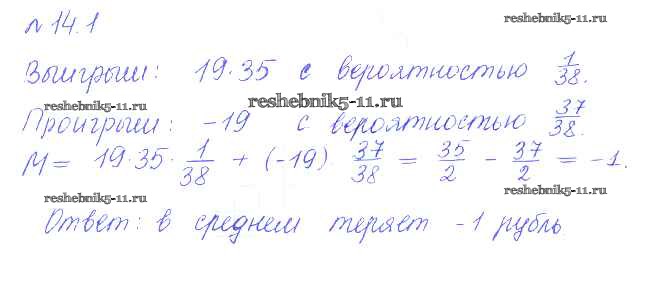 № 14.1 reshebnik5-11.ru
Выигрыш: 19·35 с вероятностью 1/38.
reshebnik5-11.ru
Проигрыш: -19 с вероятностью 37/38.
M = 19·35·1/38 + (-19)·37/38 = 35/2 - 37/2 = -1.
reshebnik5-11.ru reshebnik5-11.ru
Ответ: в среднем теряет -1 рубль.